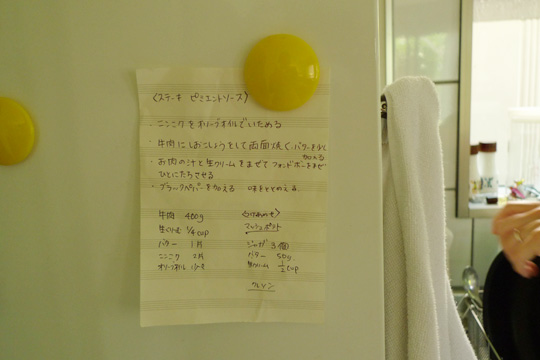 〈ステーキ ピミエントソース〉
・ニンニクをオリーブオイルでいためる
・牛肉にしおこしょうをして両面焼く、バターを少し加える
・お肉の汁と生クリームをまぜてフォンドボーをまぜ
ひとにたちさせる
・ブラックペッパーを加える 味をととのえる
牛肉 400g
生クリーム 1/4cup
バター 1片
ニンニク 2片
オリーブオイル
〈つけあわせ〉
マッシュポテト
ジャガ 3個
バター 50g
生クリーム 1/2cup
クレソン